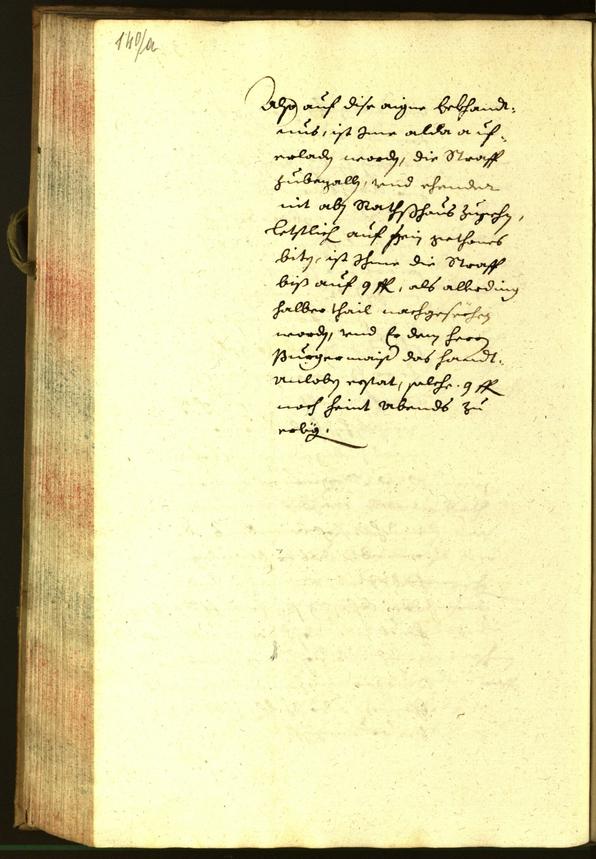 140/a
Also auf dise aigne bekhandt-
nus, ist Ime alda auf-
erladen worden, die Straff
zubezallen, vnd ehender
nit ab dem Rathßhaus zugehen,
letstlich auf sein gethones
biten, ist Ihme die Straff
biß auf 9 fl, als allerding
halber thail nachgesechen
worden, vnd Er dem herrn
Burgermaister das handt-
anloben erstat, solche 9 fl
noch heint abends zu
erlegen.